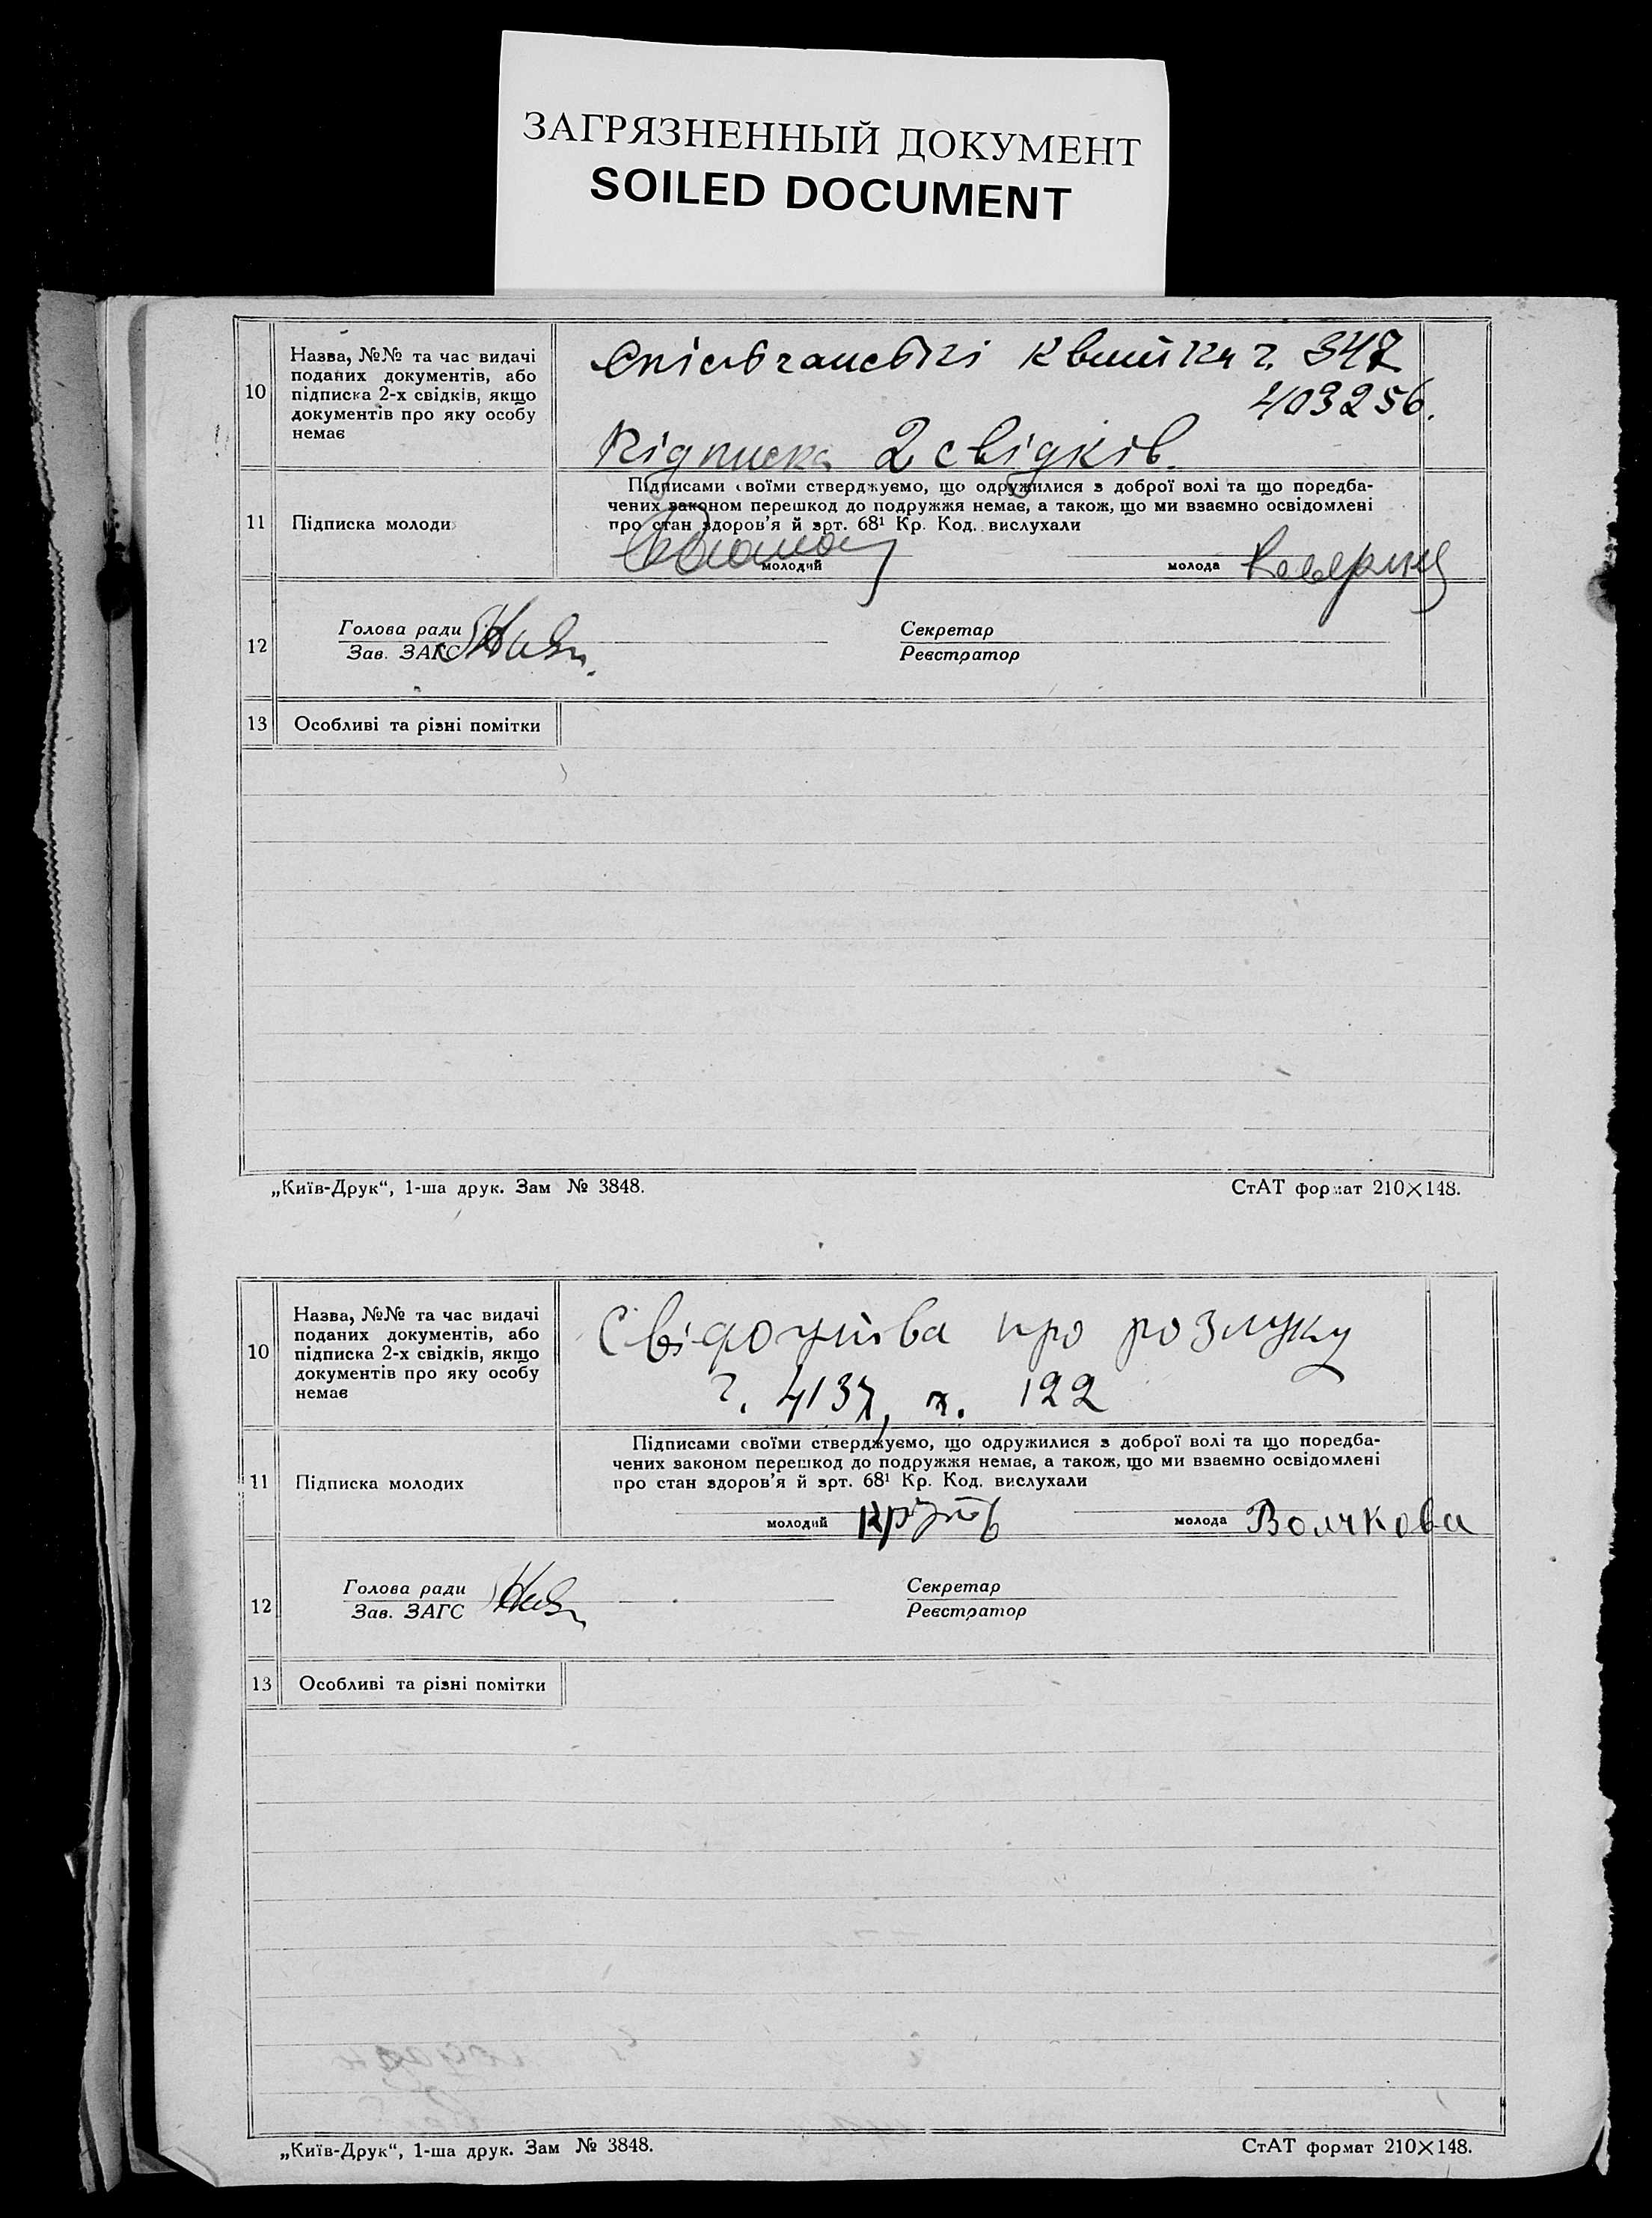 ЗАГРЯЗНЕННЫЙ ДОКУМЕНТ
SOILED DOCUMENT
10
Назва, №№ та час видачі
поданих документів, або
підписка 2-х свідків, якщо
документів про яку особу
немає
квитки ч. 347
403256.
Підписка 2 свідків.
11
Підписка молоди
Підписами своїми стверджуємо, що одружилися з доброї волі та що поредба-
чених законом перешкод до подружжя немає, а також, що ми взаємно освідомлені
про стан здоров'я й арт. 68¹ Кр. Код. вислухали
молодий
молода
12
Голова ради
Зав. ЗАГС
Секретар
Реєстратор
13
Особливі та різні помітки
„Київ-Друк“, 1-ша друк. Зам № 3848.
СтАТ формат 210×148.
10
Назва, №№ та час видачі
поданих документів, або
підписка 2-х свідків, якщо
документів про яку особу
немає
Свідоцтва про розлуку
ч. 4137, 122
11
Підписка молодих
Підписами своїми стверджуємо, що одружилися з доброї волі та що поредба-
чених законом перешкод до подружжя немає, а також, що ми взаємно освідомлені
про стан здоров'я й арт. 68¹ Кр. Код. вислухали
молодий
молода Волчкова
12
Голова ради
Зав. ЗАГС
Секретар
Реєстратор
13
Особливі та різні помітки
„Київ-Друк“, 1-ша друк. Зам № 3848.
СтАТ формат 210×148.